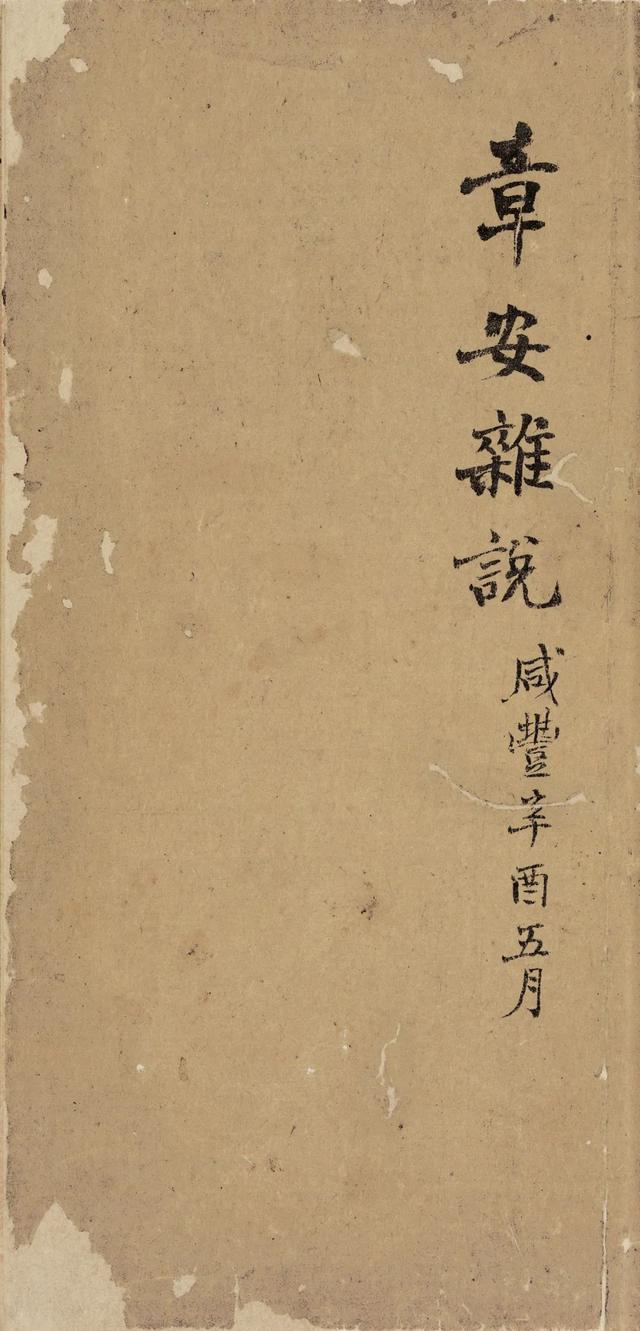 章安雜說咸豐辛酉五月